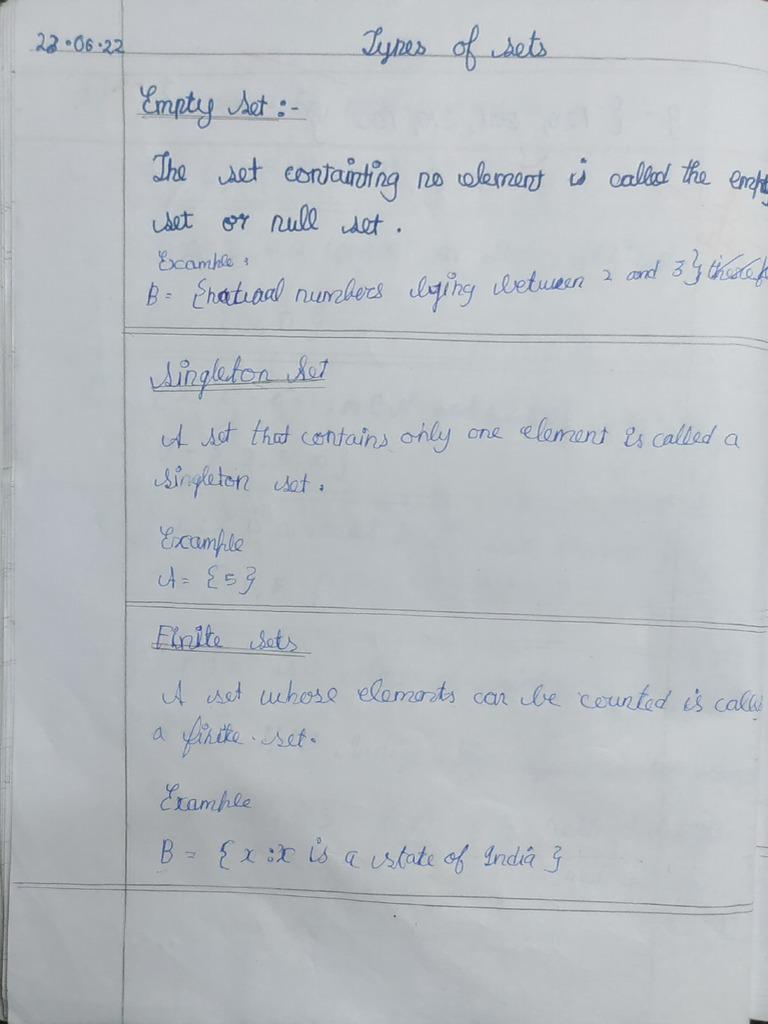 23.06.22
Types of sets
Empty set :-
The set containting no element is called the empt
set or null set .
Example :
B = {natural numbers lying between 2 and 3}
Singleton Set
A set that contains only one element is called a
singleton set .
Example
A = {5}
Finite sets
A set whose elements can be counted is calle
a finite set.
Example
B = {x : x is a state of India}